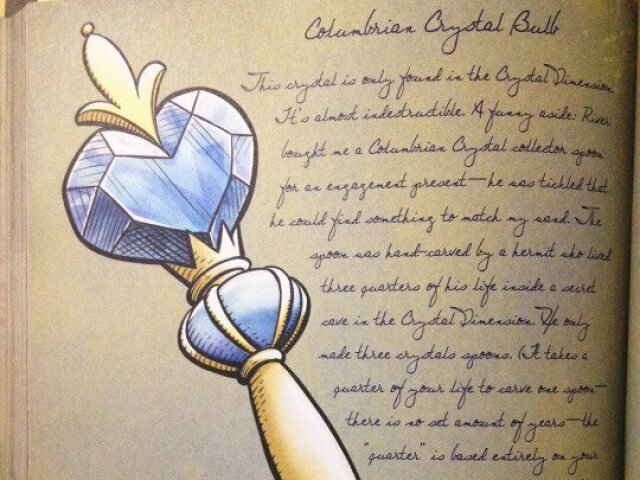 Columbrian Crystal Bulb
This crystal is only found in the Crystal Dimension.
It's almost indestructible. A funny aside: River
bought me a Columbrian Crystal collector spoon
for an engagement present—he was tickled that
he could find something to match my wand. The
spoon was hand-carved by a hermit who lived
three quarters of his life inside a secret
cave in the Crystal Dimension. He only
made three crystals spoons. (It takes a
quarter of your life to carve one spoon—
there is no set amount of years—the
"quarter" is based entirely on your